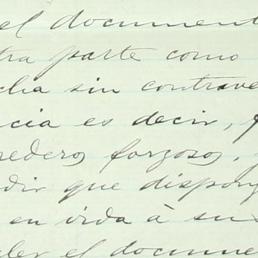 el document
tra parte como
cha sin contrave
cia es decir,
rederos forzosos,
dir que dispon
en vida á su
el docume